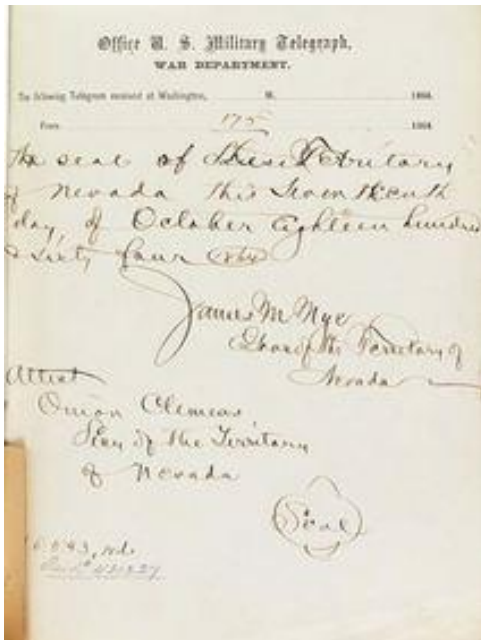 Office U. S. Military Telegraph,
WAR DEPARTMENT.
The following Telegram received at Washington, M. 186
From 175 186
The seal of Territory
of Nevada this
day of October Eighteen hundred
& sixty four (1864)
James W Nye
Gov of the Territory of
Nevada
Attest
Orion Clemens
Secy of the Territory
of Nevada
(Seal)